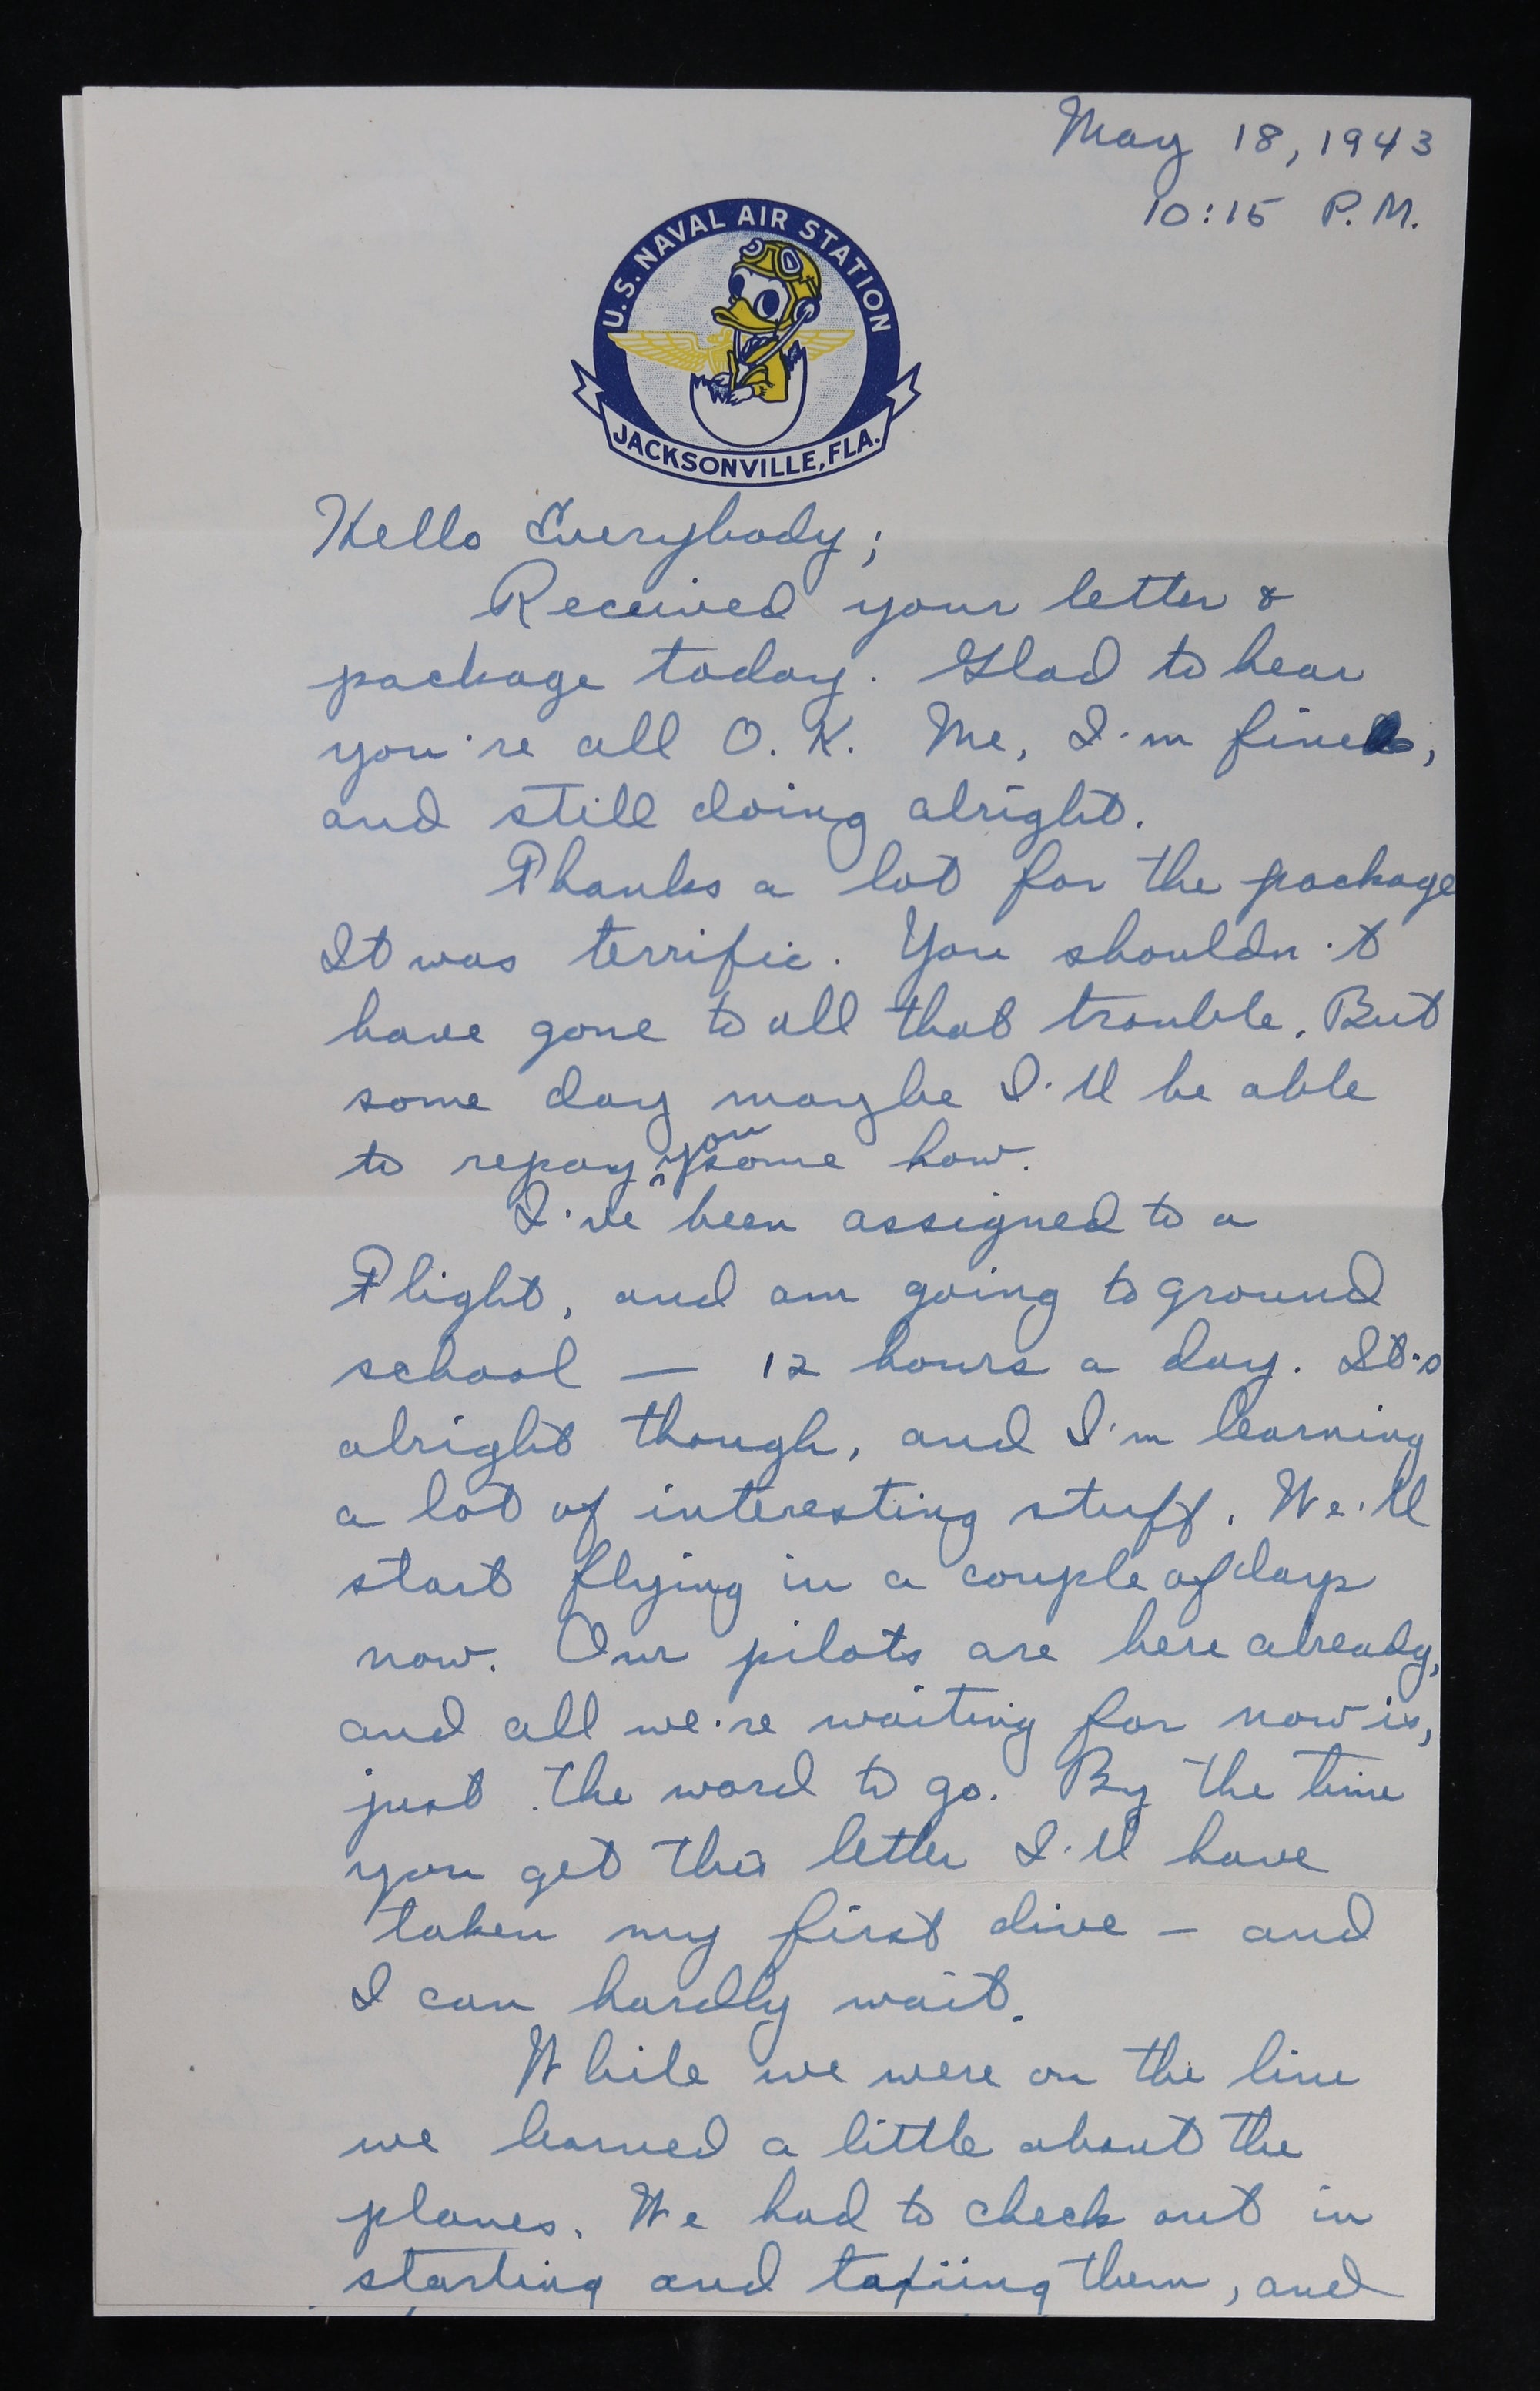 May 18, 1943
10:15 P.M.
U.S. NAVAL AIR STATION
JACKSONVILLE, FLA.
Hello Everybody;
Received your letter &
package today. Glad to hear
you're all O.K. Me, I'm fine,
and still doing alright.
Thanks a lot for the package
It was terrific. You shouldn't
have gone to all that trouble. But
some day maybe I'll be able
to repay you some how.
I've been assigned to a
Flight, and am going to ground
school — 12 hours a day. It's
alright though, and I'm learning
a lot of interesting stuff. We'll
start flying in a couple of days
now. Our pilots are here already,
and all we're waiting for now is,
just the word to go. By the time
you get this letter I'll have
taken my first dive — and
I can hardly wait.
While we were on the line
we learned a little about the
planes. We had to check out in
starting and taxiing them, and